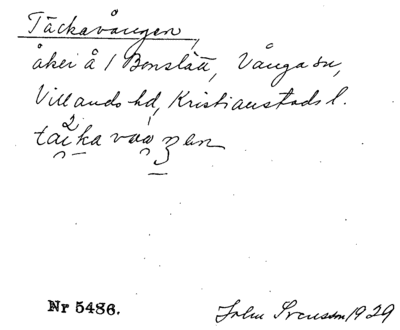 Täckavången,
åker å 1 Bonslätt, Vånga sn,
Villands hd, Kristianstads l.
Nr 5486.
John Svensson 1929